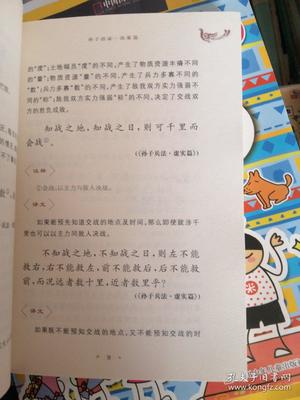 孙子兵法·战策篇
的“度”;土地幅员“度”的不同,产生了物质资源丰瘠不同
的“量”;物质资源“量”的不同,产生了兵力多寡不同的
“数”;兵力多寡“数”的不同,产生了敌我双方实力强弱不
同的“称”;敌我双方实力强弱“称”的不同,决定了交战双
方的胜负成败。
知战之地,知战之日,则可千里而
会战①。
(《孙子兵法·虚实篇》)
注释
①会战:以主力同敌人决战。
译文
如果能预先知道交战的地点及时间,那么即使跋涉千
里也可以以主力同敌人决战。
不知战之地,不知战之日,则左不能
救右,右不能救左,前不能救后,后不能救
前,而况远者数十里,近者数里乎?
(《孙子兵法·虚实篇》)
译文
如果既不能预知交战的地点,又不能预知交战的时
中国
米
少年儿童出版社
孔夫子旧书网